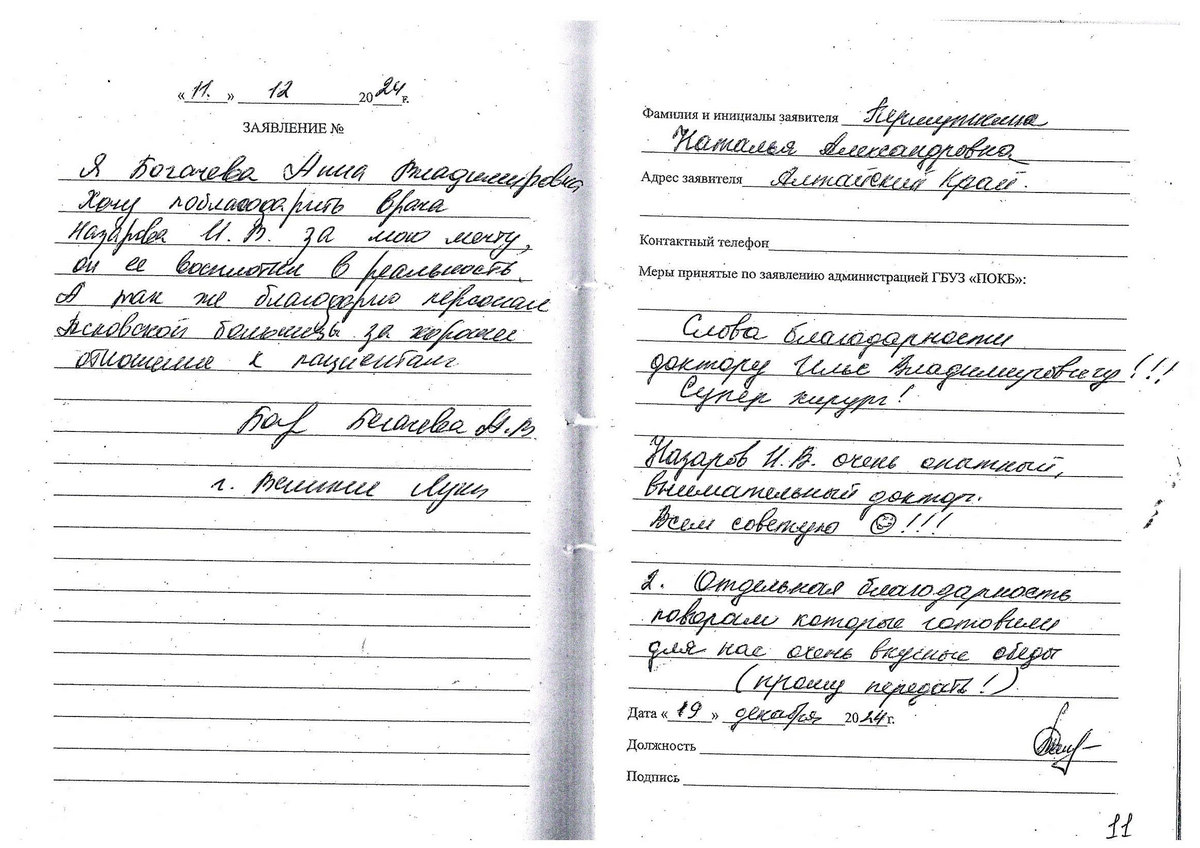 «11.» 12 2024г.
ЗАЯВЛЕНИЕ №
Я Богачева Анна Владимировна
Хочу поблагодарить врача
Назарова И. В. за мою мечту,
он ее восплотил в реальность.
А так же благодарю персонал
Псковской больницы за хорошее
отношение к пациентам
Богачева А.В.
г. Великие Луки
Фамилия и инициалы заявителя
Наталья Александровна
Адрес заявителя Алтайский Край.
Контактный телефон
Меры принятые по заявлению администрацией ГБУЗ «ПОКБ»:
Слова благодарности
доктору Илье Владимировичу!!!
Супер хирург!
Назаров И.В. очень опытный,
внимательный доктор.
Всем советую ☺!!!
2. Отдельная благодарность
поварам которые готовили
для нас очень вкусные обеды
(прошу передать!)
Дата «19» декабря 2024г.
Должность
Подпись
11